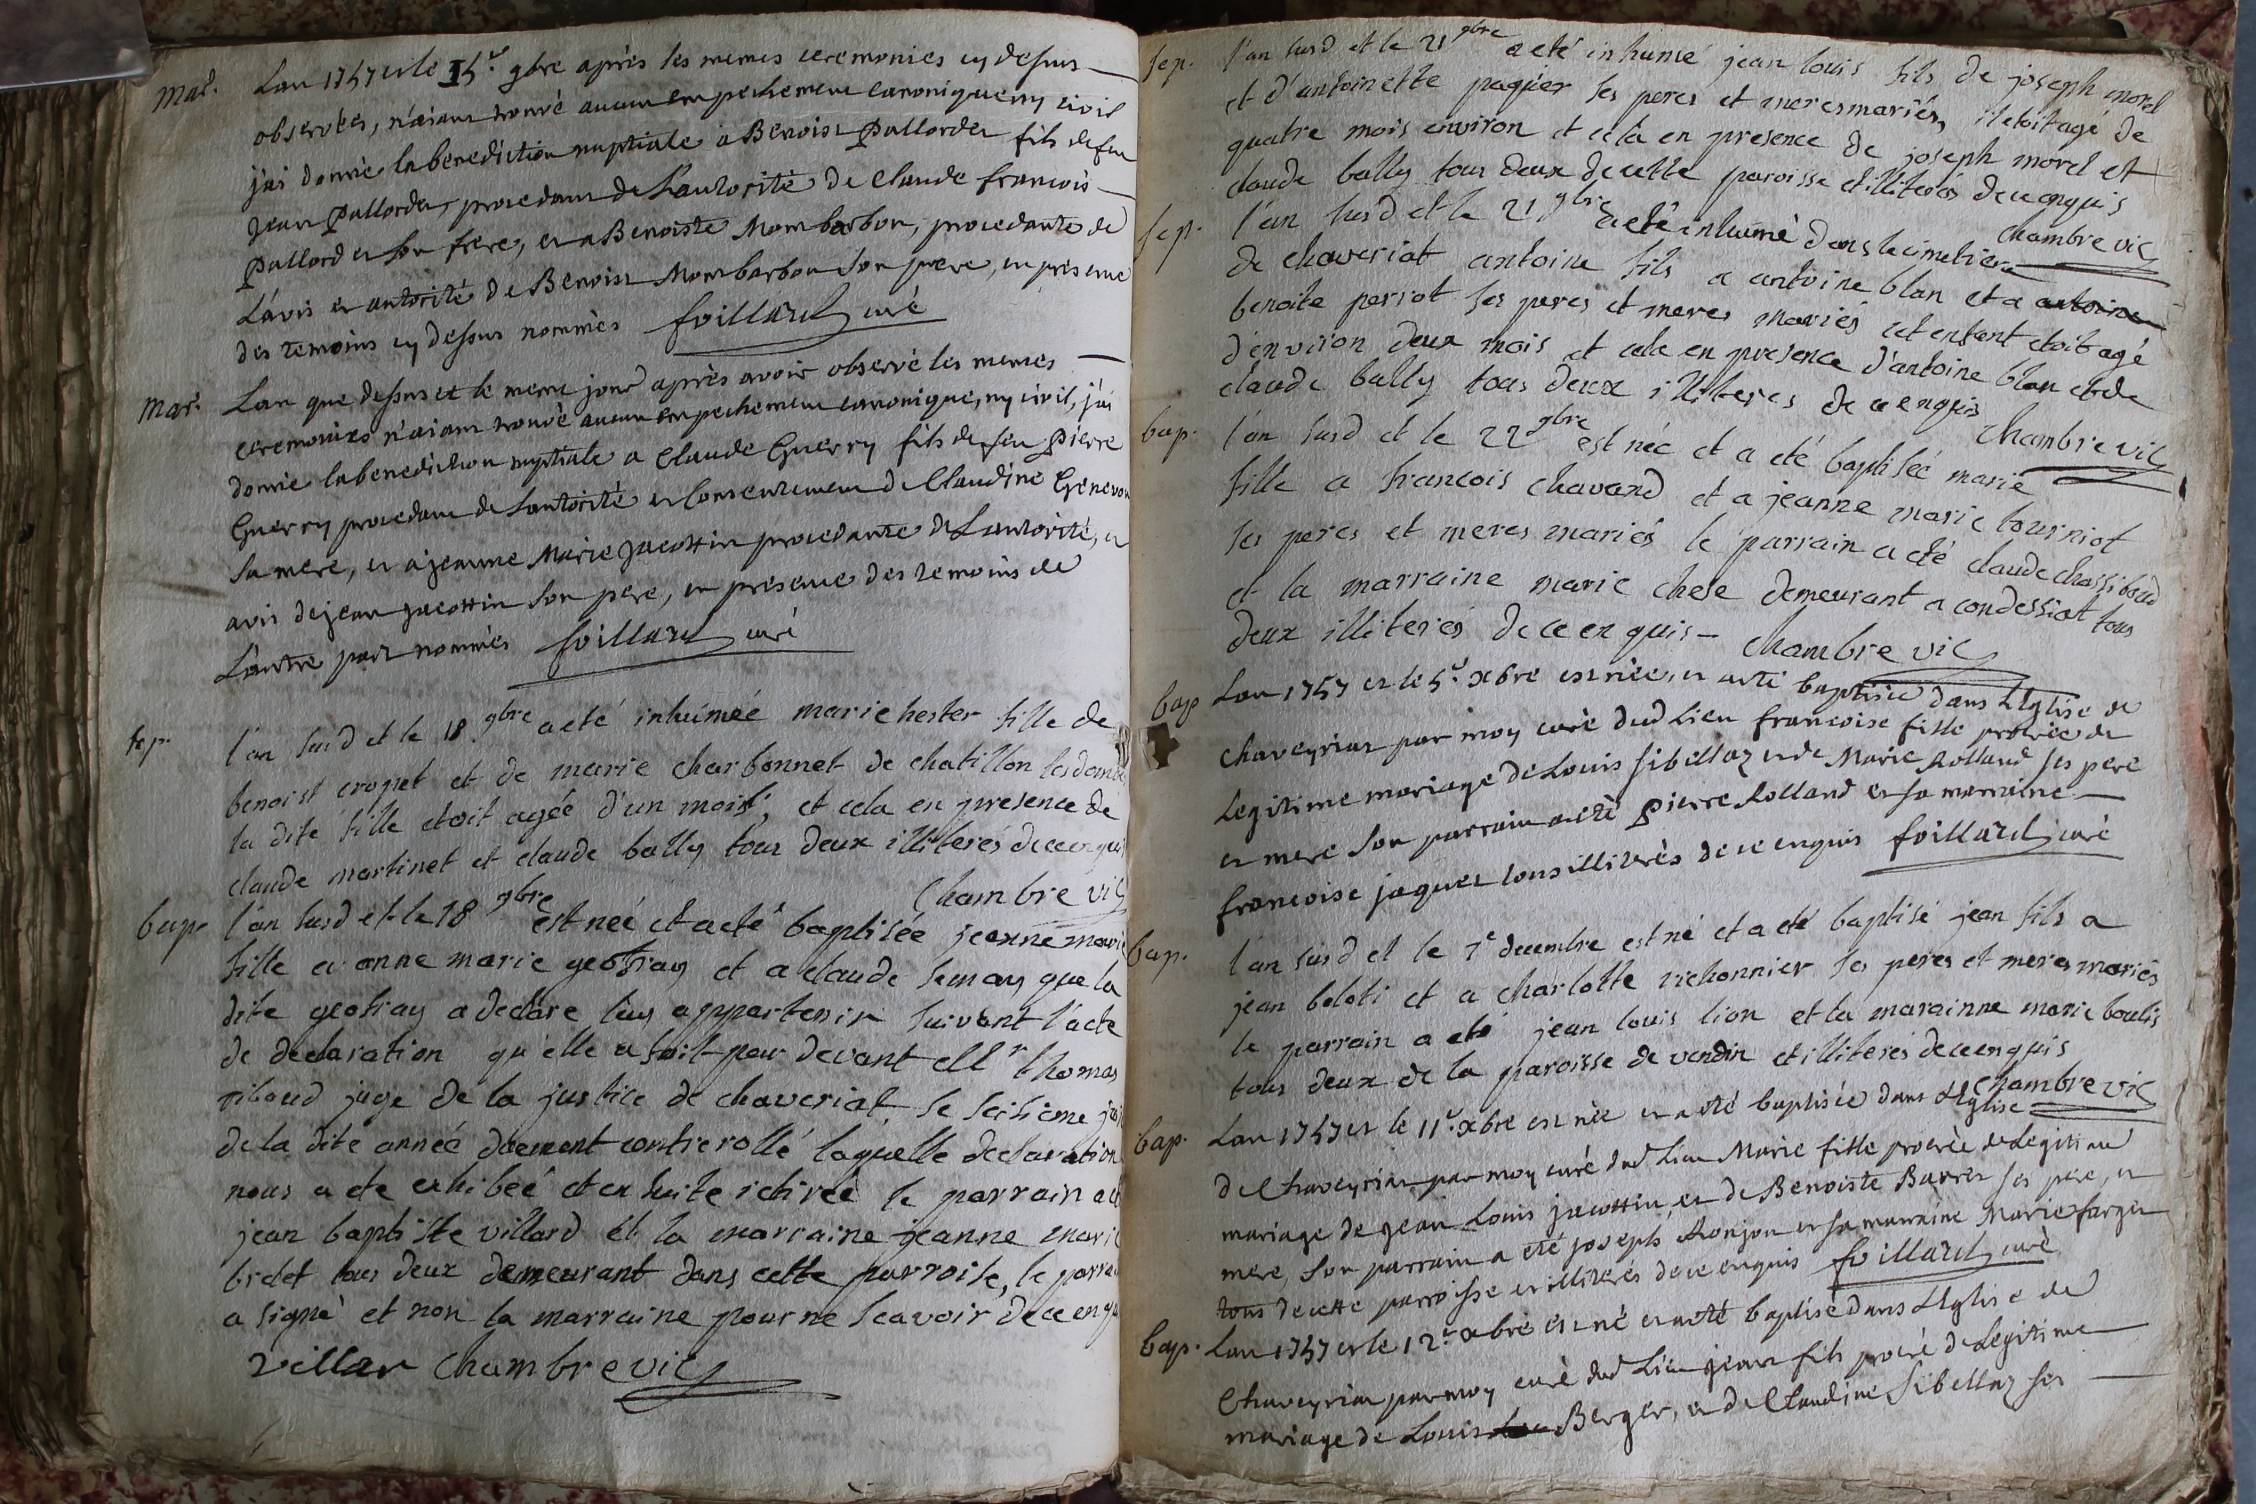 mar. Lan 1757 et le 15e 9bre après les memes ceremonies cy dessus
observées, n'aiant trouvé aucun empechement canonique ny civil
j'ai donné la benediction nuptiale à Benoist Pallordet fils de feu
Jean Pallordet, procedant de L'autorité de Claude françois
Pallordet son frere, et a Benoiste Mombarbon, procedante de
L'avis et autorité de Benoist Mombarbon son pere, en presence
des temoins cy dessus nommés foillard curé
mar. Lan que dessus et le meme jour après avoir observé les memes
ceremonies n'aiant trouvé aucun empechement canonique, ny civil, j'ai
donné la benediction nuptiale a Claude Guerry fils de feu pierre
Guerry procedant de L'autorité et consentement de Claudine Genevon
sa mere, et a jeanne Marie Jacottin procedante de L'autorité, et
avis de jean jacottin son pere, en presence des temoins de
L'autre part nommés foillard curé
sep. l'an susd et le 18 9bre a eté inhumée marie hester fille de
benoist cropet et de marie charbonnet de chatillon lesdombe
la dite fille etoit agée d'un mois, et cela en presence de
claude martinet et claude bally tous deux illiterés de ce enquis
Chambre vic
bap. l'an susd et le 18 9bre est née et a eté baptisée jeanne marie
fille a anne marie geofray et a claude semay que la
dite geofray a declare luy appartenir suivant l'acte
de declaration qu'elle a fait par devant Mr thomas
ribaud juge de la justice de chaveriat le seisieme juin
de la dite année duement controllé laquelle declaration
nous a ete exhibée et en suite retirée le parrain a eté
jean baptiste villard et la marraine jeanne marie
bidet tous deux demeurant dans cette parroise, le parrain
a signé et non la marraine pour ne scavoir de ce enquis
Villar Chambre vic
sep. l'an susd et le 21 9bre a eté inhumé jean louis fils de joseph morel
et d'antoinette paquier ses peres et meres mariés, il etoit agé de
quatre mois environ et cela en presence de joseph morel et
claude bally tous deux de cette paroisse et illiterés de ce enquis
Chambre vic
sep. l'an susd et le 21 9bre a eté inhumé dans le cimetiere
de chaveriat antoine fils a antoine blan et a antoine
benoite perrot ses peres et meres mariés cet enfant etoit agé
d'environ deux mois et cela en presence d'antoine blan et de
claude bally tous deux illiteres de ce enquis
Chambre vic
bap. l'an susd et le 22 9bre est née et a eté baptisée marie
fille a francois chavand et a jeanne marie tourniot
ses peres et meres mariés le parrain a eté claude chassibaud
et la marraine marie chese demeurant a condessiat tous
deux illiterés de ce enquis Chambre vic
bap Lan 1757 et le 5e xbre est née, et a eté baptisée dans L'Eglise de
chaveyriat par moy curé dud Lieu francoise fille procréé de
Legitime mariage de Louis sibellaz et de Marie Rolland ses pere
et mere son parrain a eté pierre Rolland et sa marraine
francoise jaquet tous illiterés de ce enquis foillard curé
bap. l'an susd et le 7e decembre est né et a eté baptisé jean fils a
jean boloti et a charlotte richonnier ses peres et meres mariés
le parrain a eté jean louis lion et la marainne marie boulis
tous deux de la paroisse de vandin et illiterés de ce enquis
Chambre vic
bap. Lan 1757 et le 11e xbre est née et a eté baptisée dans L'Eglise
de Chaveyriat par moy curé dud Lieu Marie fille procréé de Legitime
mariage de jean Louis jacottin, et de Benoiste Barret ses pere, et
mere, son parrain a eté joseph Ronjon et sa marraine Marie farget
tous de cette parroisse et illiterés de ce enquis foillard curé
bap. Lan 1757 et le 12e xbre est né et a eté baptisé dans L'Eglise de
Chaveyriat par moy curé dud Lieu jean fils procréé de Legitime
mariage de Louis Berger, et de Claudine Sibellaz ses